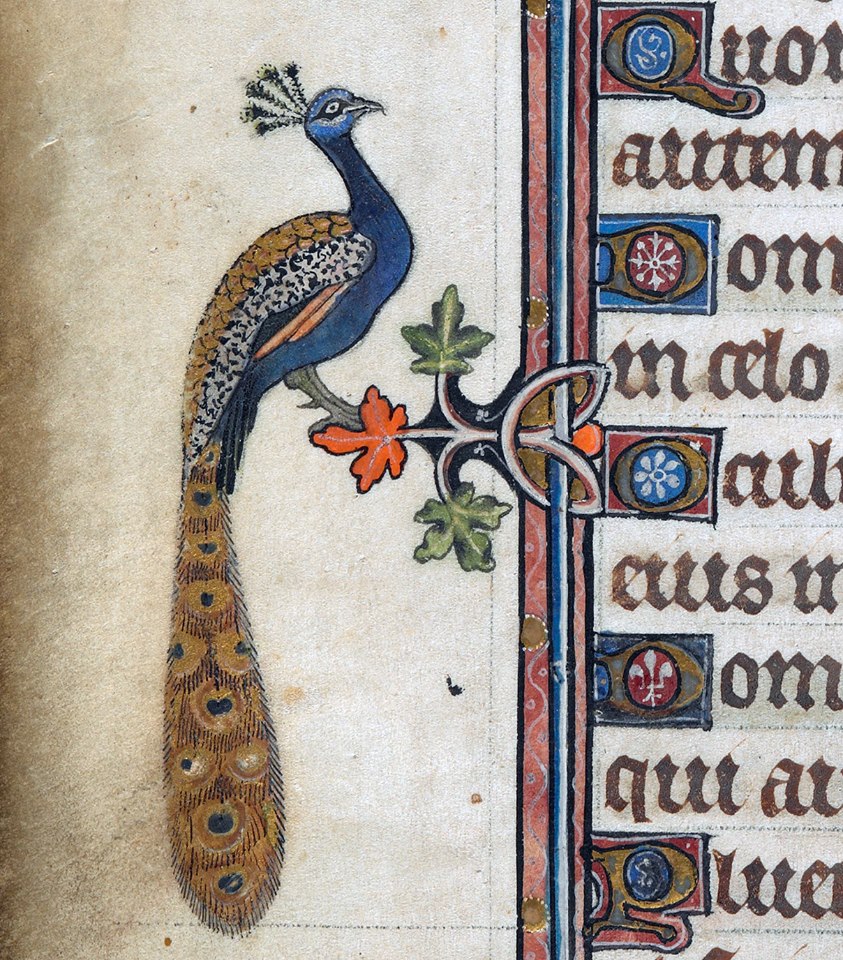 Quon
autem
Dom
in celo
Ocul
eius in
Dom
qui au
Plue